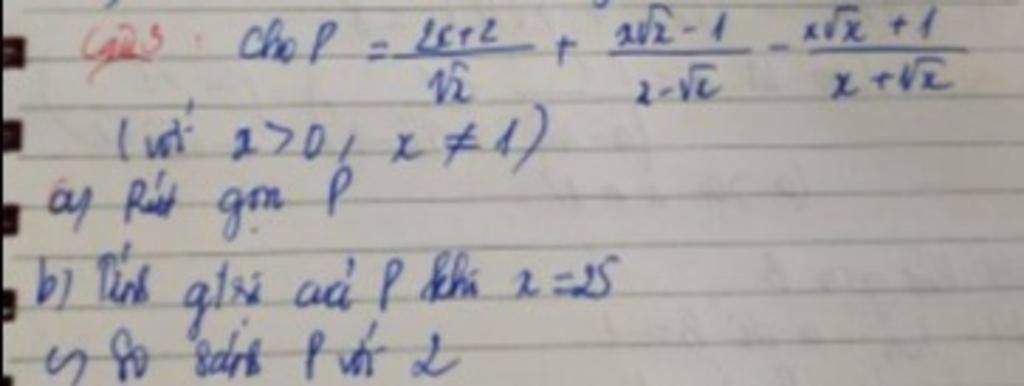 Câu 3: Cho P = \frac{2x+2}{\sqrt{x}} + \frac{x\sqrt{x}-1}{x-\sqrt{x}} - \frac{x\sqrt{x}+1}{x+\sqrt{x}}
(với x > 0, x ≠ 1)
a) Rút gọn P
b) Tính gtrị của P khi x = 25
c) So sánh P với 2